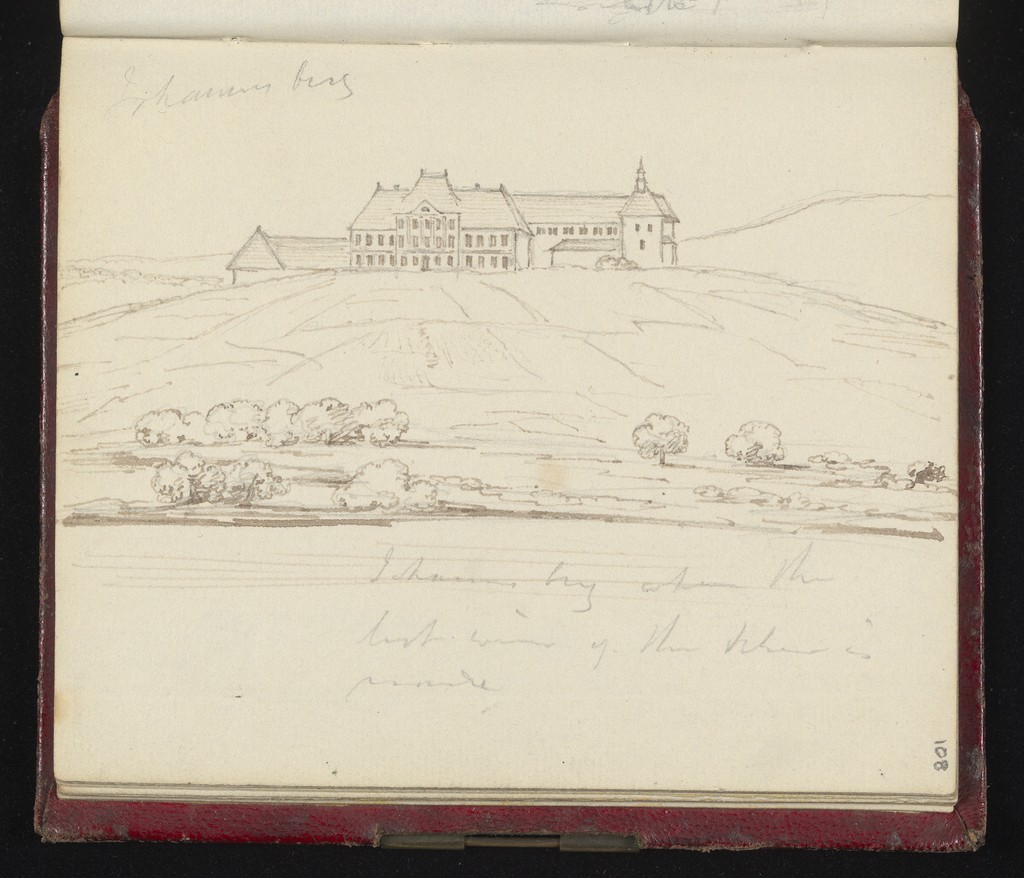 Johannisberg
Johannisberg where the
best wine of the Rhine is
made
108